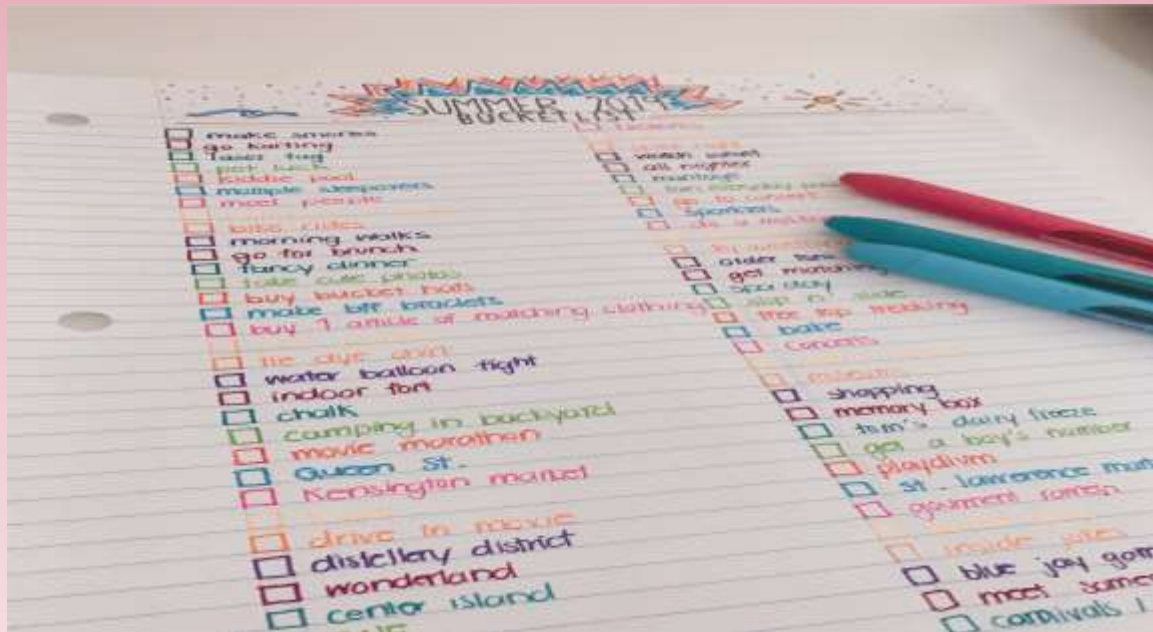 SUMMER 2019
BUCKETLIST
make smores
go karting
laser tag
pot luck
kiddie pool
multiple sleepovers
meet people
bike rides
morning walks
go for brunch
fancy dinner
take cute photos
buy bucket hats
make bff braclets
buy 1 article of matching clothing
tie dye shirt
water balloon fight
indoor fort
chalk
camping in backyard
movie marathon
Queen St.
Kensington market
drive in movie
distellery district
wonderland
center island
watch sunset
all nighter
go to concert
sparklers
get matching
spa day
slip n' slide
tree top trekking
bake
concerts
shopping
memory box
tom's dairy freeze
get a boy's number
playdium
st. lawerence
gourment ramen
inside jokes
blue jay
meet
carnivals